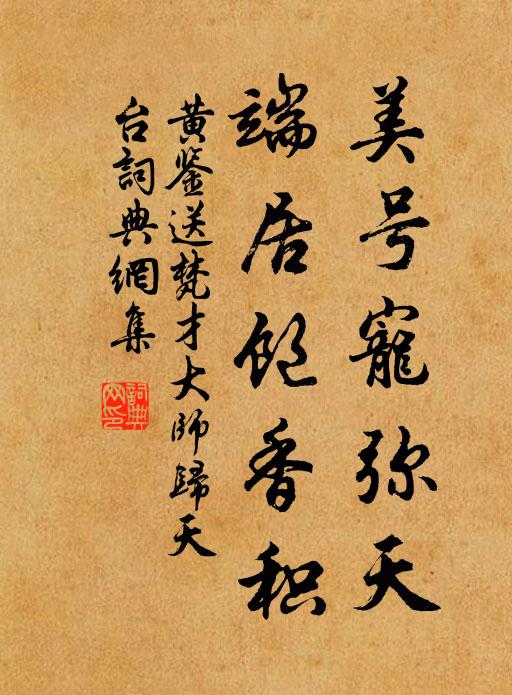 美号寵弥天
端居飽香积
黄鉴送梵才大师歸天
台詞典網集
詞典网印